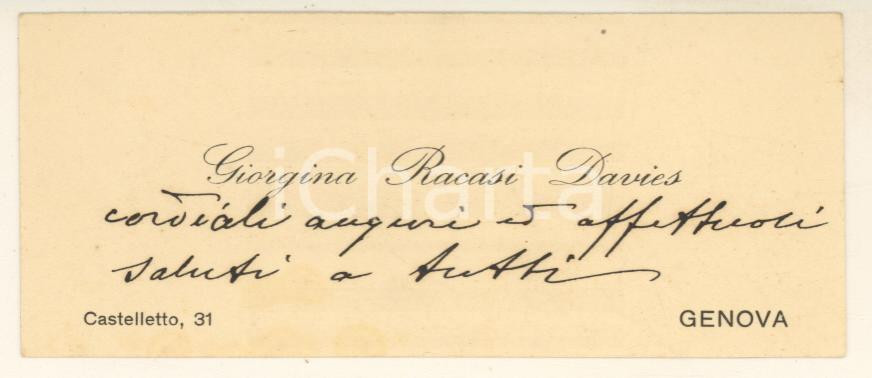 Giorgina Racasi Davies
cordiali auguri ed affettuosi
saluti a tutti
Castelletto, 31
GENOVA
iCharta